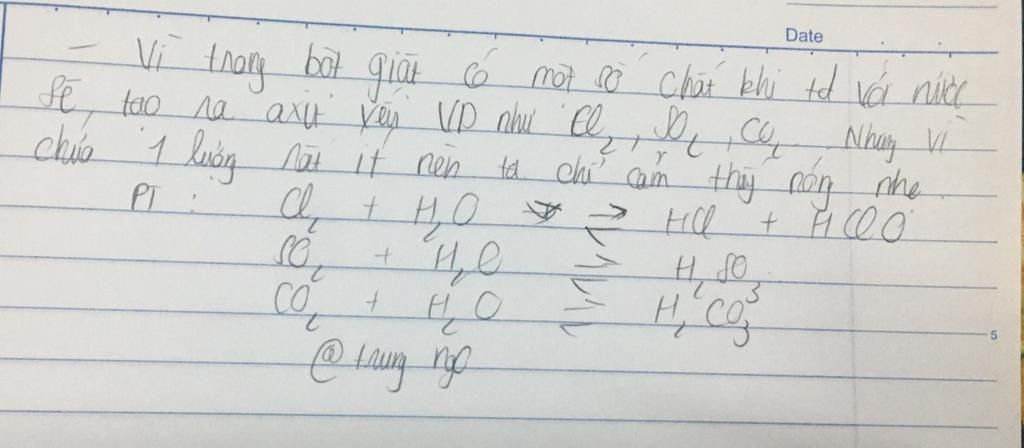 Date
- Vì trong bột giặt có một số chất khi td với nước
sẽ tạo ra axit yếu VD như Cl₂, SO₂, CO₂. Nhưng vì
chứa 1 lượng rất ít nên ta chỉ cảm thấy nóng nhẹ.
PT : Cl₂ + H₂O ⇌ HCl + HClO
SO₂ + H₂O ⇌ H₂SO₃
CO₂ + H₂O ⇌ H₂CO₃
5
@trung ngo